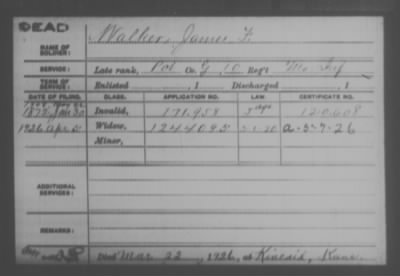 DEAD
NAME OF SOLDIER: Walker, James F.
SERVICE: Late rank, Pvt Co. G, 10 Reg't Mo. Inf
TERM OF SERVICE: Enlisted , 1 Discharged , 1
DATE OF FILING. CLASS. APPLICATION NO. LAW. CERTIFICATE NO.
Jan 30 Invalid, 171,958 120,608
1926 Apr 5 Widow, 1244095 5-1-20 a-5-7-26
Minor,
ADDITIONAL SERVICES:
REMARKS:
Died Mar. 22, 1926, at Kincaid, Kans.